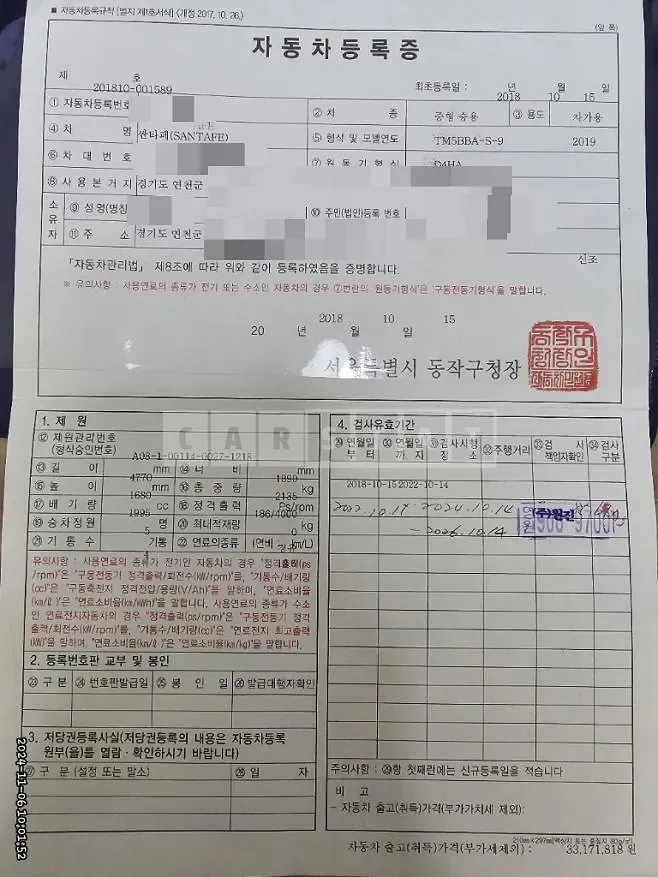 ■ 자동차등록규칙 [별지 제1호서식] <개정 2017. 10. 26.>
(앞 쪽)
자동차등록증
제 호
201810-001589
최초등록일 : 년 월 일
2018 10 15
① 자동차등록번호
② 차 종 중형 승용 ③ 용도 자가용
④ 차 명 싼타페(SANTAFE)
⑤ 형식 및 모델연도 TM5BBA-S-9 2019
⑥ 차 대 번 호
⑦ 원 동 기 형 식 D4HA
⑧ 사 용 본 거 지 경기도 연천군
소유자
⑨ 성 명(명칭)
⑩ 주민(법인)등록 번호
⑪ 주 소 경기도 연천군
신조
「자동차관리법」 제8조에 따라 위와 같이 등록하였음을 증명합니다.
※ 유의사항 : 사용연료의 종류가 전기 또는 수소인 자동차의 경우 ⑦번란의 '원동기형식'은 '구동전동기형식'을 말합니다.
2018 10 15
20 년 월 일
서울특별시 동작구청장
CAR
1. 제 원
⑫ 제원관리번호
(형식승인번호)
A08-1-00114-0027-1218
⑬ 길 이 4770 mm ⑭ 너 비 1890 mm
⑮ 높 이 1680 mm ⑯ 총 중 량 2135 kg
⑰ 배 기 량 1995 cc ⑱ 정 격 출 력 186/4000 Ps/rpm
⑲ 승차정원 5 명 ⑳ 최대적재량 0 kg
㉑ 기 통 수 4 기통 ㉒ 연료의종류 (연비 km/L)
유의사항 : 사용연료의 종류가 전기인 자동차의 경우 "정격출력(ps
/rpm)"은 "구동전동기 정격출력/회전수(kW/rpm)"을, "기통수/배기량
(cc)"은 "구동축전지 정격전압/용량(V/Ah)"을 말하며, "연료소비율
(km/ℓ)"은 "연료소비율(km/kWh)"을 말합니다. 사용연료의 종류가 수소
인 연료전지자동차의 경우 "정격출력(ps/rpm)"은 "구동전동기 정격
출력/회전수(kW/rpm)"를, "기통수/배기량(cc)"은 "연료전지 최고출력
(kW)"을 말하며, "연료소비율(km/ℓ)"은 "연료소비율(km/kg)"을 말합니다.
2. 등록번호판 교부 및 봉인
㉓ 구 분 ㉔ 번호판발급일 ㉕ 봉 인 일 ㉖ 발급대행자확인
3. 저당권등록사실(저당권등록의 내용은 자동차등록
원부(을)를 열람·확인하시기 바랍니다)
㉗ 구 분 (설정 또는 말소) ㉘ 일 자
4. 검사유효기간
㉙ 연월일부터 ㉚ 연월일까지 ㉛ 검사시행장소 ㉜ 주행거리 ㉝ 검사책임자확인 ㉞ 검사구분
2018-10-15 2022-10-14
2022.10.17 - 2024.10.14
- 2026.10.14
주의사항 : ㉙항 첫째란에는 신규등록일을 적습니다
비 고
- 자동차 출고(취득)가격(부가가치세 제외):
210㎜×297㎜[백상지 또는 중질지 80g/㎡]
자동차 출고(취득)가격(부가세제외) : 33,171,818 원
2024-11-06 10:01:52